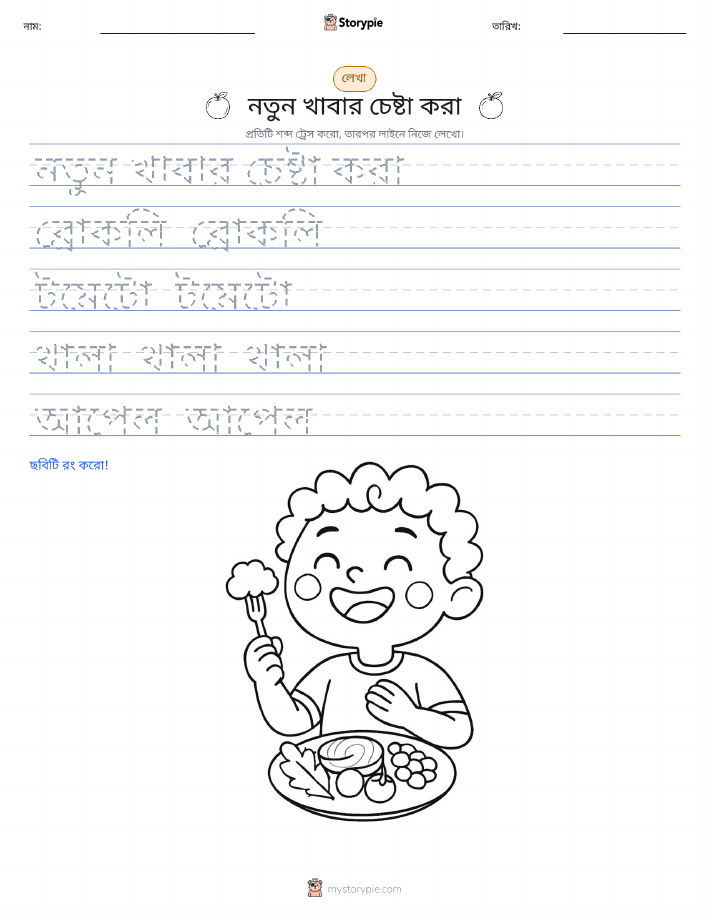 নাম:
Storypie
তারিখ:
লেখা
নতুন খাবার চেষ্টা করা
প্রতিটি শব্দ ট্রেস করো, তারপর লাইনে নিজে লেখো।
নতুন খাবার চেষ্টা করা
ব্রোকলি ব্রোকলি
টমেটো টমেটো
থালা থালা থালা
আপেল আপেল
ছবিটি রং করো!
mystorypie.com